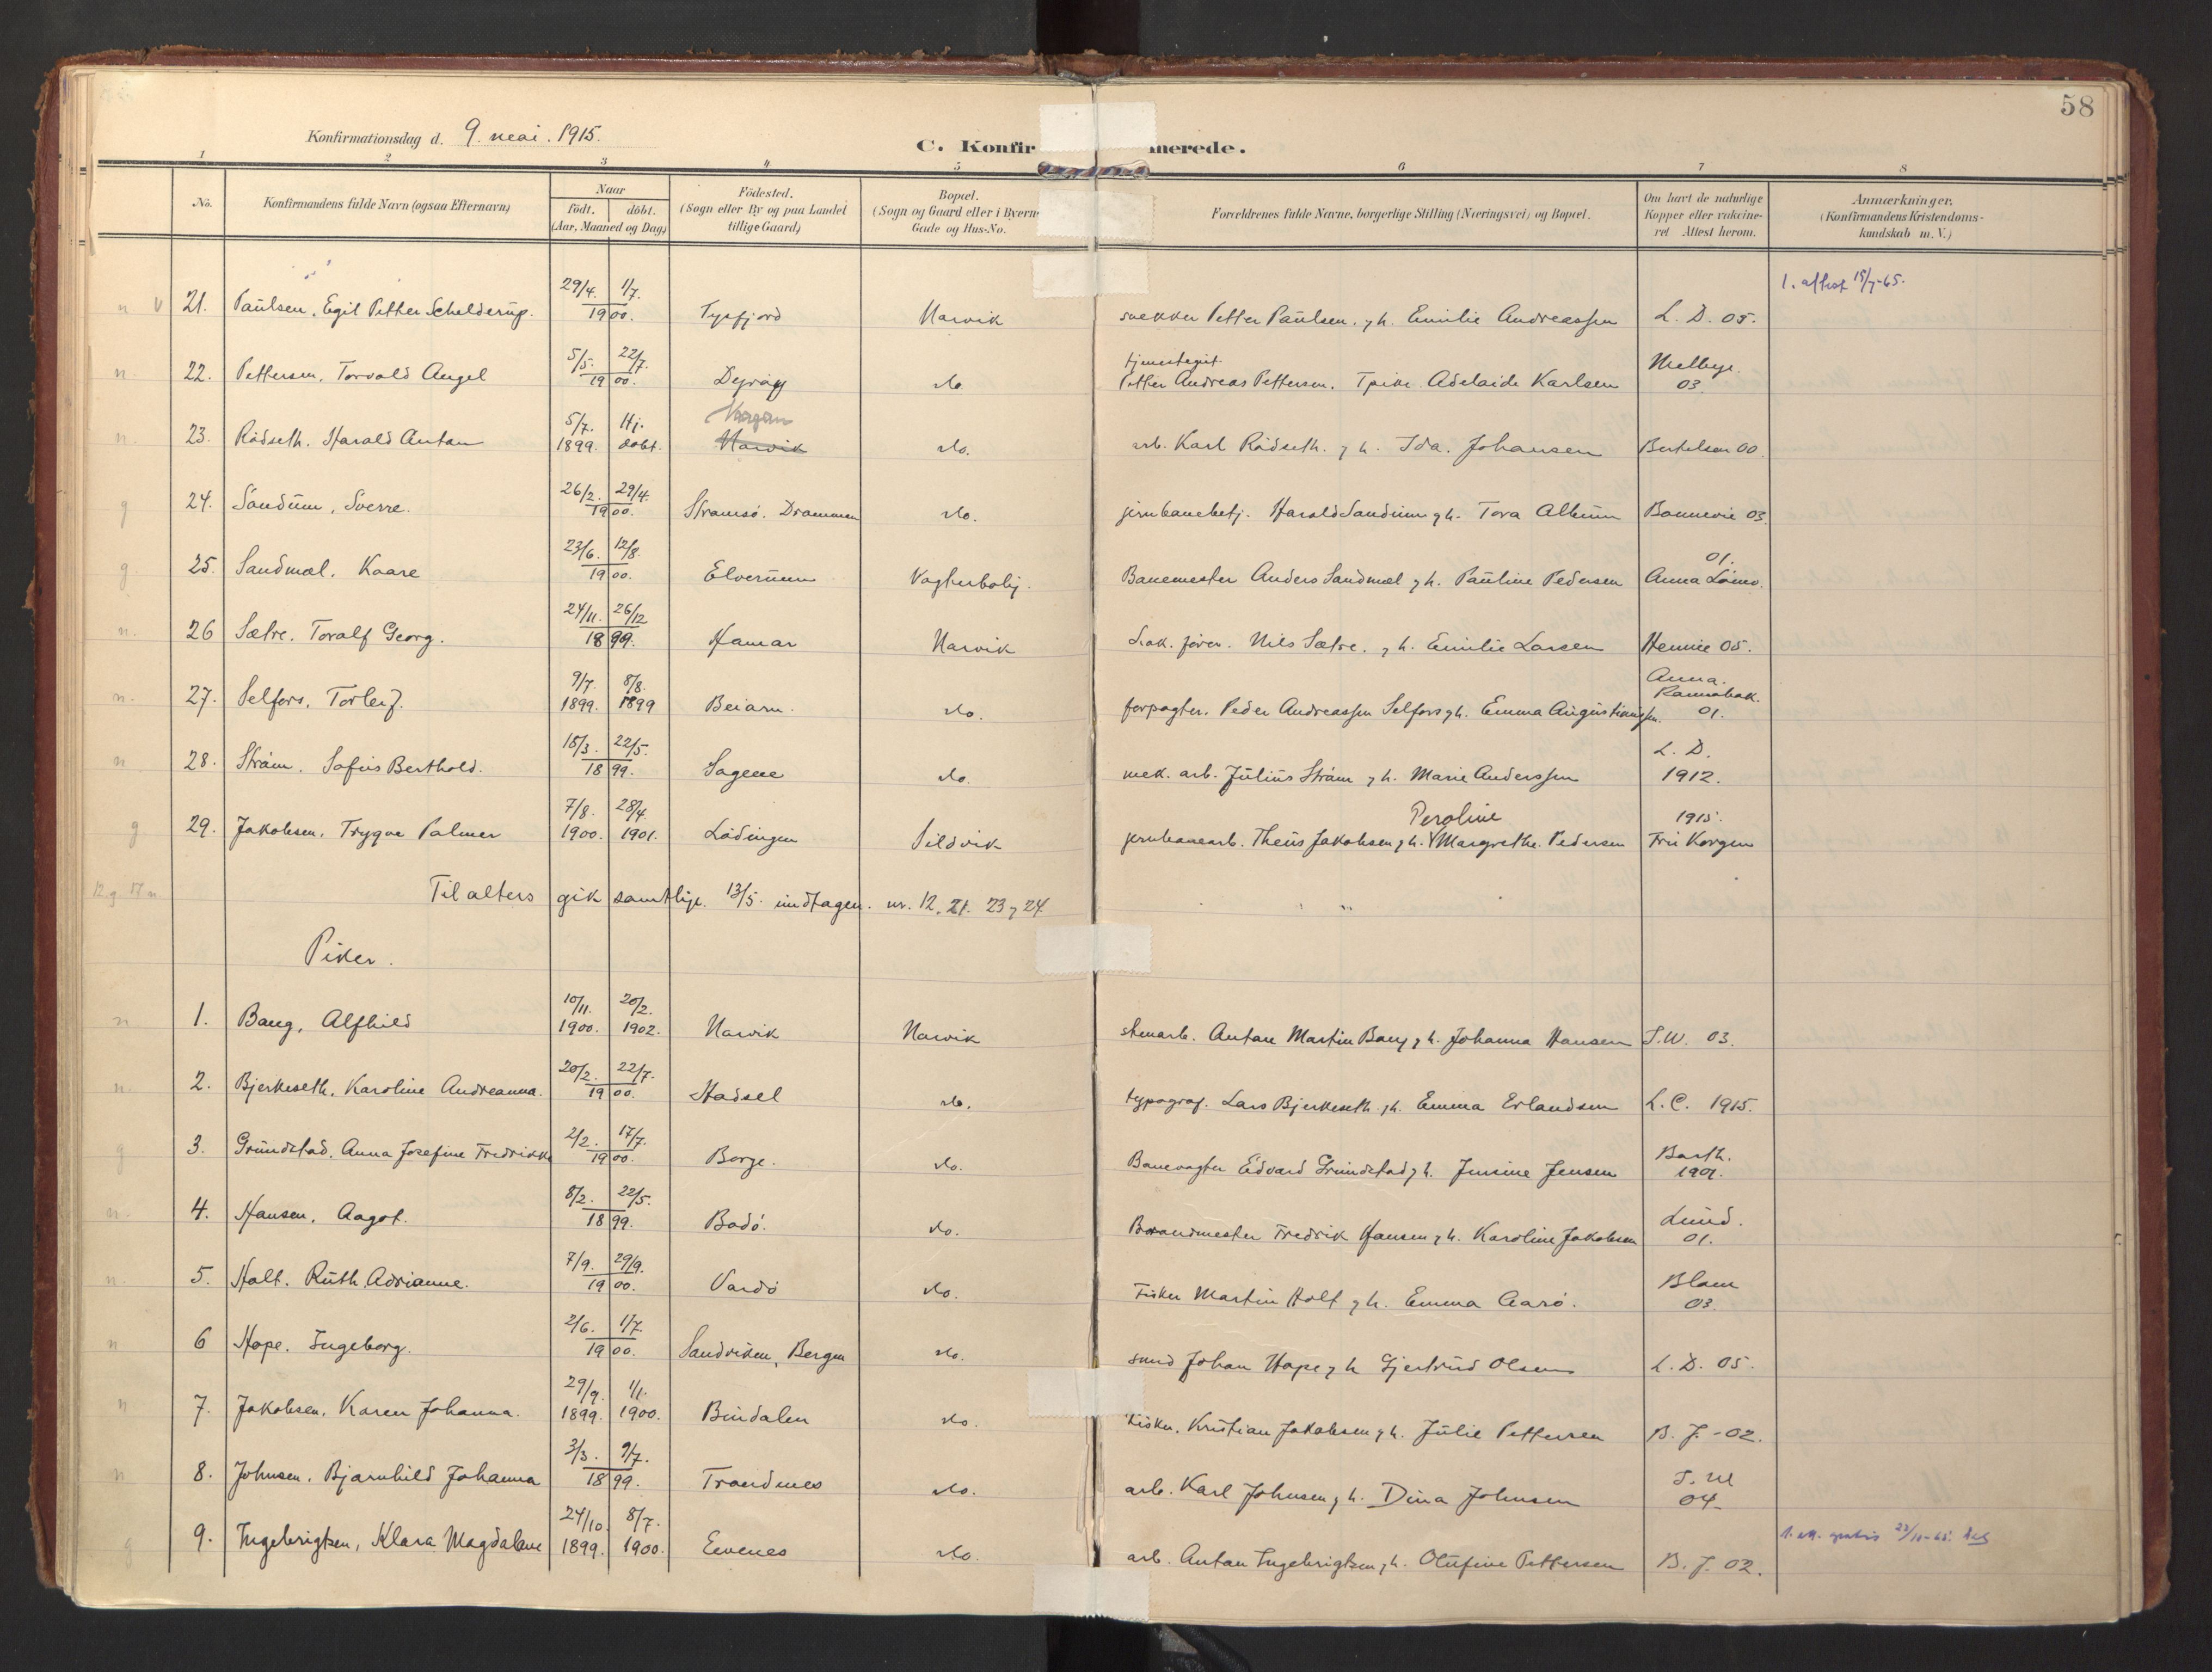 58
Konfirmationsdag d. 9. mai. 1915.
C. Konfir merede.
1 2 3 4 5 6 7 8
No. Konfirmandens fulde Navn (ogsaa Efternavn) Naar födt. döbt. (Aar, Maaned og Dag) Födested. (Sogn eller By og paa Landet tillige Gaard) Bopæl. (Sogn og Gaard eller i Byerne Gade og Hus-No. Forældrenes fulde Navne, borgerlige Stilling (Næringsvei) og Bopæl. Om havt de naturlige Kopper eller vakcineret Attest herom. Anmærkninger. (Konfirmandens Kristendomskundskab m. V.)
1. attest 15/7-65.
n V 21. Paulsen, Egil Petter Schelderup. 29/4. 1/7. 1900. Tysfjord Narvik snekker Petter Paulsen. g h. Emilie Andreassen L. D. 05.
n. 22. Pettersen, Torvald Angel 5/5. 22/7. 1900. Dyrøy do. Petter Andreas Pettersen. Tpike Adelaide Karlsen Melbye. 03
n. 23. Rödseth. Harald Anton 5/7. 1899. Hj. döbt. Narvik do. arb. Karl Rödseth. g h. Ida. Johansen Bertelsen 00.
g 24. Sandum, Sverre. 26/2. 29/4. 1900. Strømsö. Drammen do. jernbanebetj. Harald Sandum g h. Tora Album Bonnevie 03.
g. 25. Sandmæl. Kaare 23/6. 12/8. 1900. Elverum Vogterbolig. Banemester Anders Sandmæl g h. Pauline Pedersen 01. Anna
n. 26 Sætre. Toralf Georg. 24/11. 26/12 1899. Hamar Narvik Nils Sætre. g h. Emilie Larsen Hennie 05.
n. 27. Selfors, Torleif. 9/7. 1899. 8/8. 1899 Beiarn. do. forpagter. Peder Andreassen Selfors g h. Emma Augustiniussen. Anna. 01.
n 28. Ström. Sofus Berthold. 15/3. 22/5. 1899. Sagene do. mek. arb. Julius Ström g h. Marie Anderssen L. D. 1912.
g 29. Jakobsen, Trygve Palmer 7/8. 1900. 28/4. 1901. Lödingen Sildvik jernbanearb. Theus Jakobsen g h. Peroline Margrethe. Pedersen 1915. Fru Korgen
12 g 17 n. Til alters gik samtlige. 13/5. undtagen. nr. 12, 21. 23 g 24
Piker.
n 1. Bang, Alfhild 10/11. 1900. 20/2. 1902. Narvik Narvik stenarb. Anton Martin Bang g h. Johanna Hansen S.W. 03.
n. 2. Bjerkeseth, Karoline Andreanna. 20/2. 22/7. 1900. Hadsel do. typograf. Lars Bjerkeseth g h. Emma Erlandsen L. C. 1915.
g 3. Grundstad, Anna Josefine Fredrikke 2/2. 17/7. 1900. Borge. do. Banevogter Edvard Grundstad g h. Jensine Jensen Barth. 1901.
n. 4. Hansen, Aagot. 8/2. 22/5. 1899. Bodö. do. Brandmester Fredrik Hansen g h. Karoline Jakobsen Lund. 01.
n. 5. Holt. Ruth Adrianne. 7/9. 29/9. 1900. Vardö do. Fisker Martin Holt g h. Emma Aarö. Blom 03.
n 6 Hope. Ingeborg. 2/6. 1/7. 1900. Sandviken, Bergen do. smed Johan Hope g h Gjertrud Olsen L. D. 05.
n 7. Jakobsen, Karen Johanna. 29/9. 1899. 1/1. 1900. Bindalen do. Fisker. Kristian Jakobsen g h. Julie Pettersen B. J. - 02.
n 8. Johnsen. Bjarnhild Johanna 3/3. 9/7. 1899. Trondenes do. arb. Karl Johnsen g h. Dina Johnsen 04
g 9. Ingebrigtsen, Klara Magdalene 24/10. 1899. 8/7. 1900. Evenes do. arb. Anton Ingebrigtsen g h. Olufine Pettersen B. J. 02.